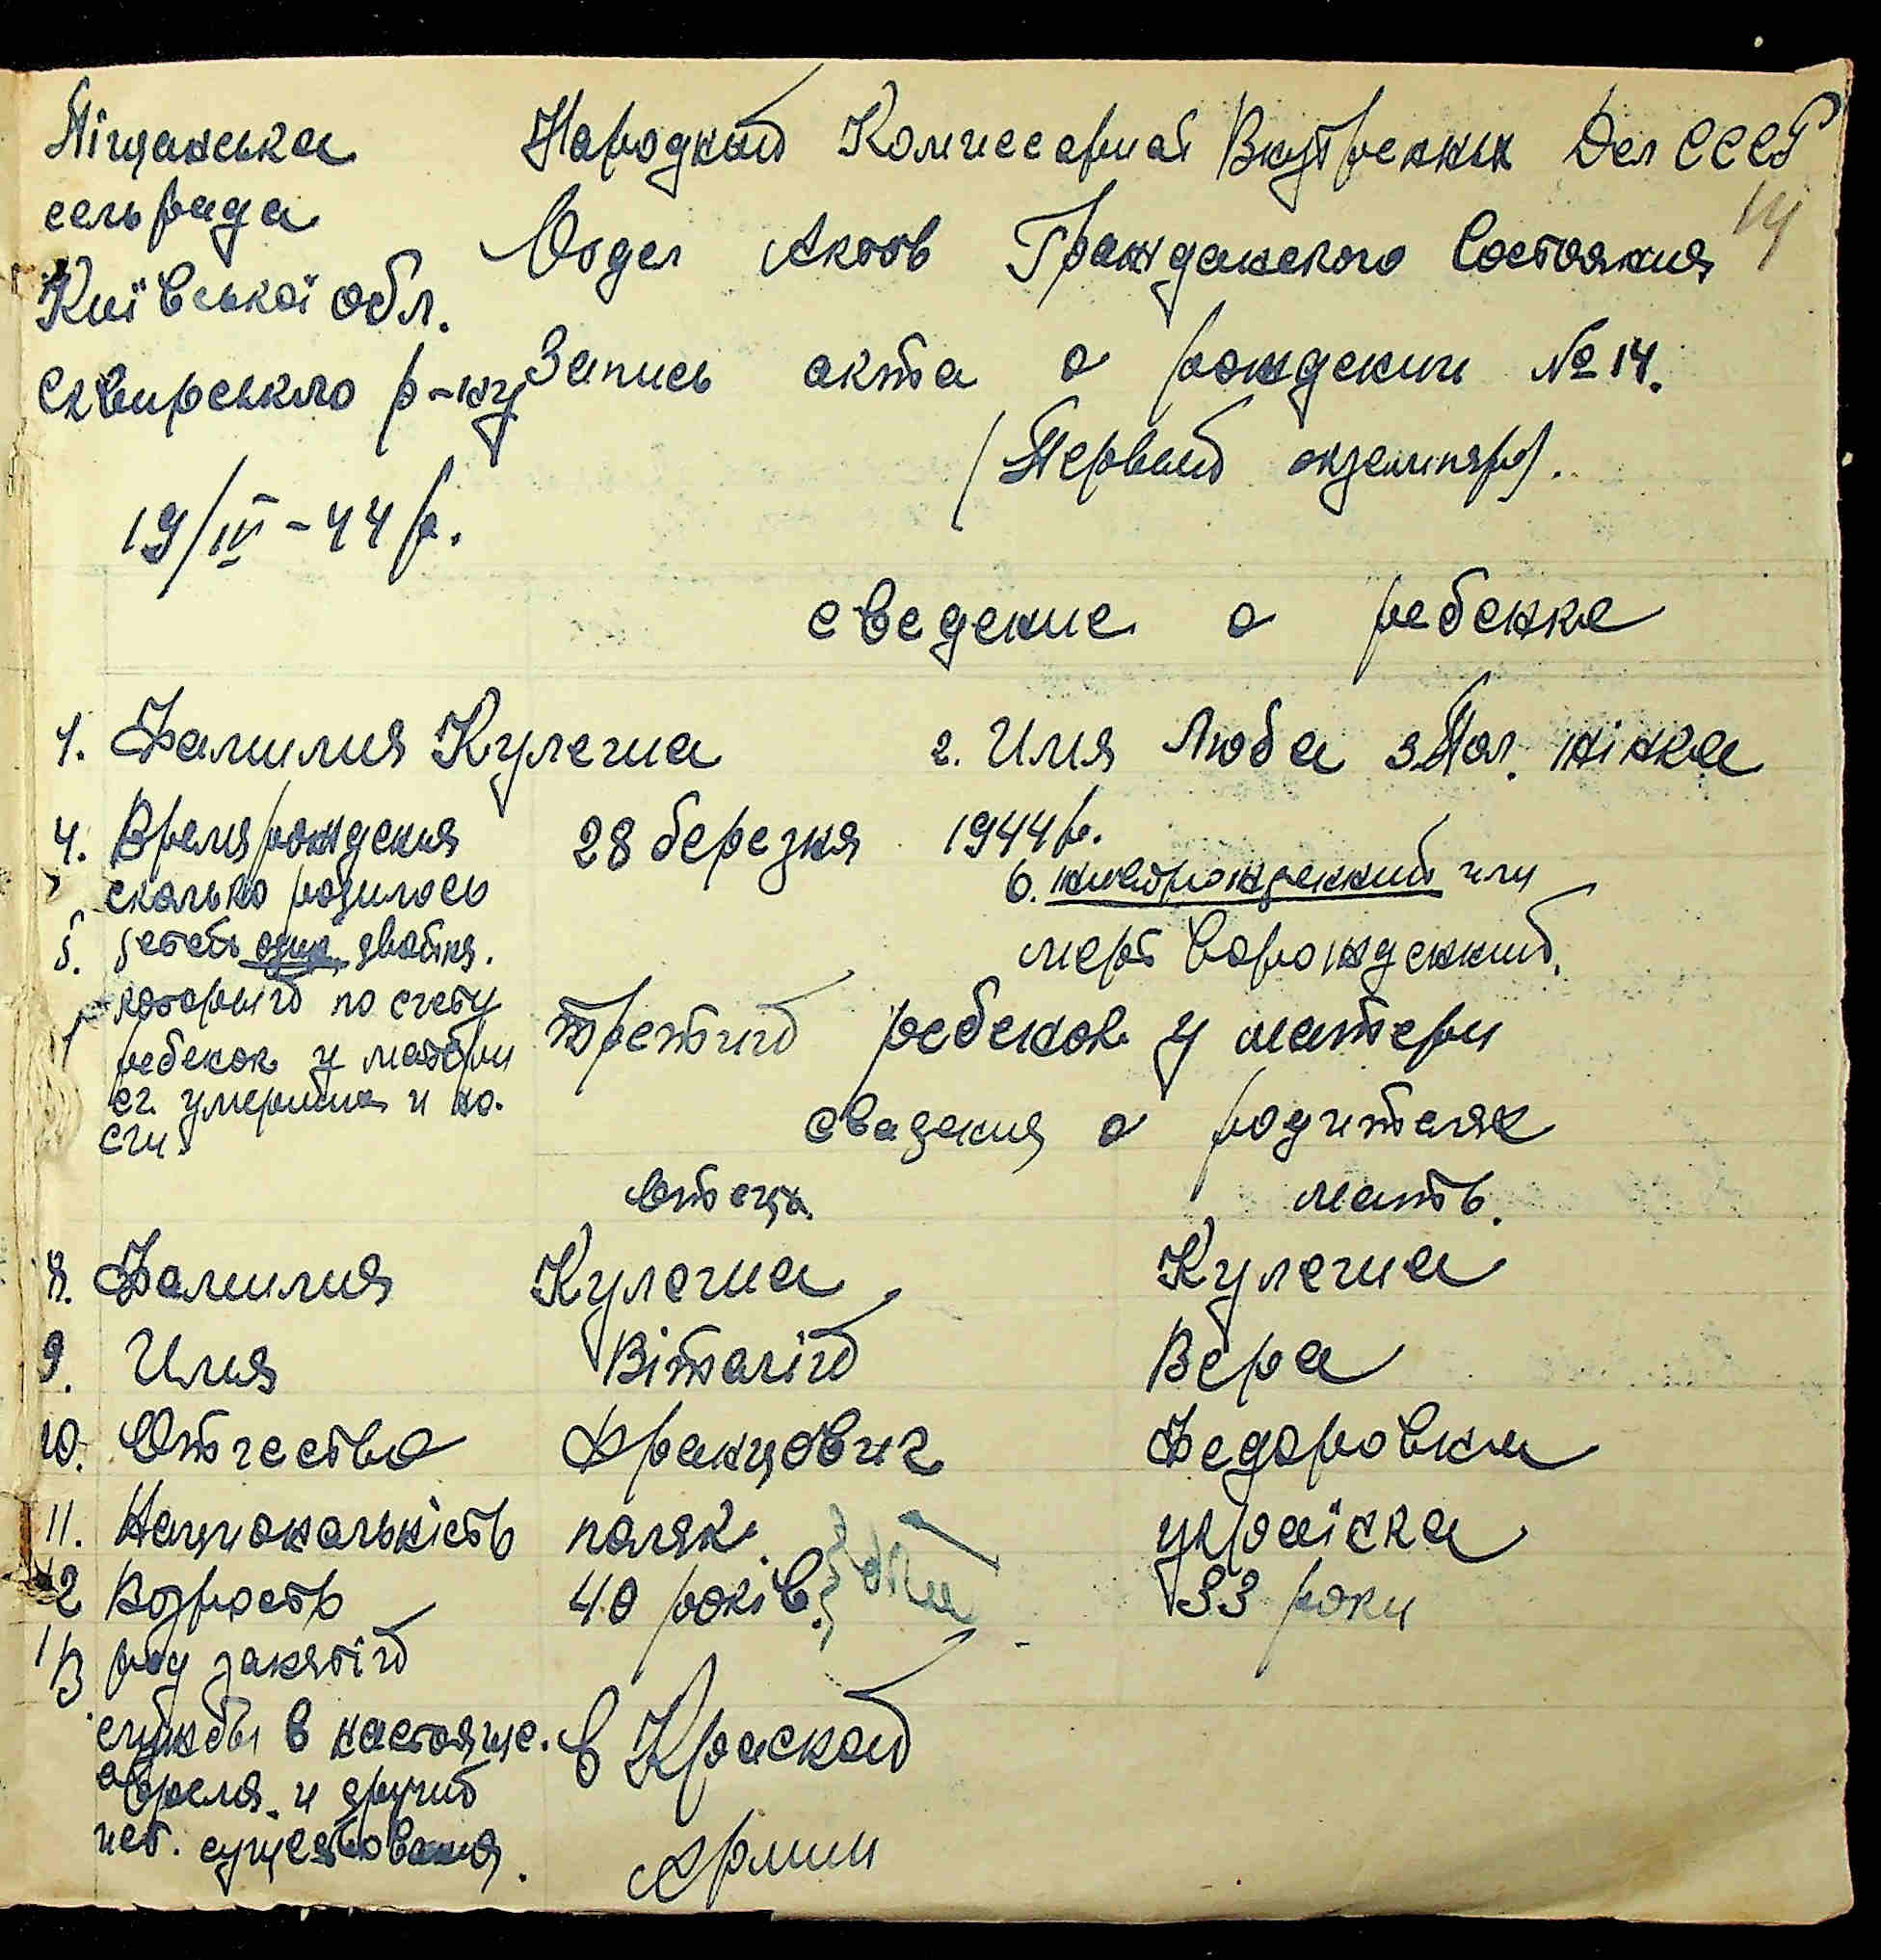 Піщанська
сельрада
Київської обл.
Сквирського р-ну
19/IV – 44 р.
Народный Комиссариат Внутренних Дел СССР
14
Отдел Актов Гражданского Состояния
Запись акта о рождении № 14.
(Первый экземпляр).
сведение о ребенке
1. Фамилия Кулеша 2. Имя Люба 3. Пол. жінка
4. Время рождения 28 березня 1944 р.
сколько родилось
5. детей один двойня.
6. живорожденный или
мертворожденный.
который по счету
ребенок у матери
третий ребенок у матери
сведения о родителях
отец мать.
8. Фамилия Кулеша Кулеша
9. Имя Віталій Вера
10. Отчество Францович Федоровна
11. Национальність поляк. украінка
12 Возрость 40 років. 33 роки
13 род занятій
службы в настояще.
время и другий
ист. существования.
в Краской
Армии